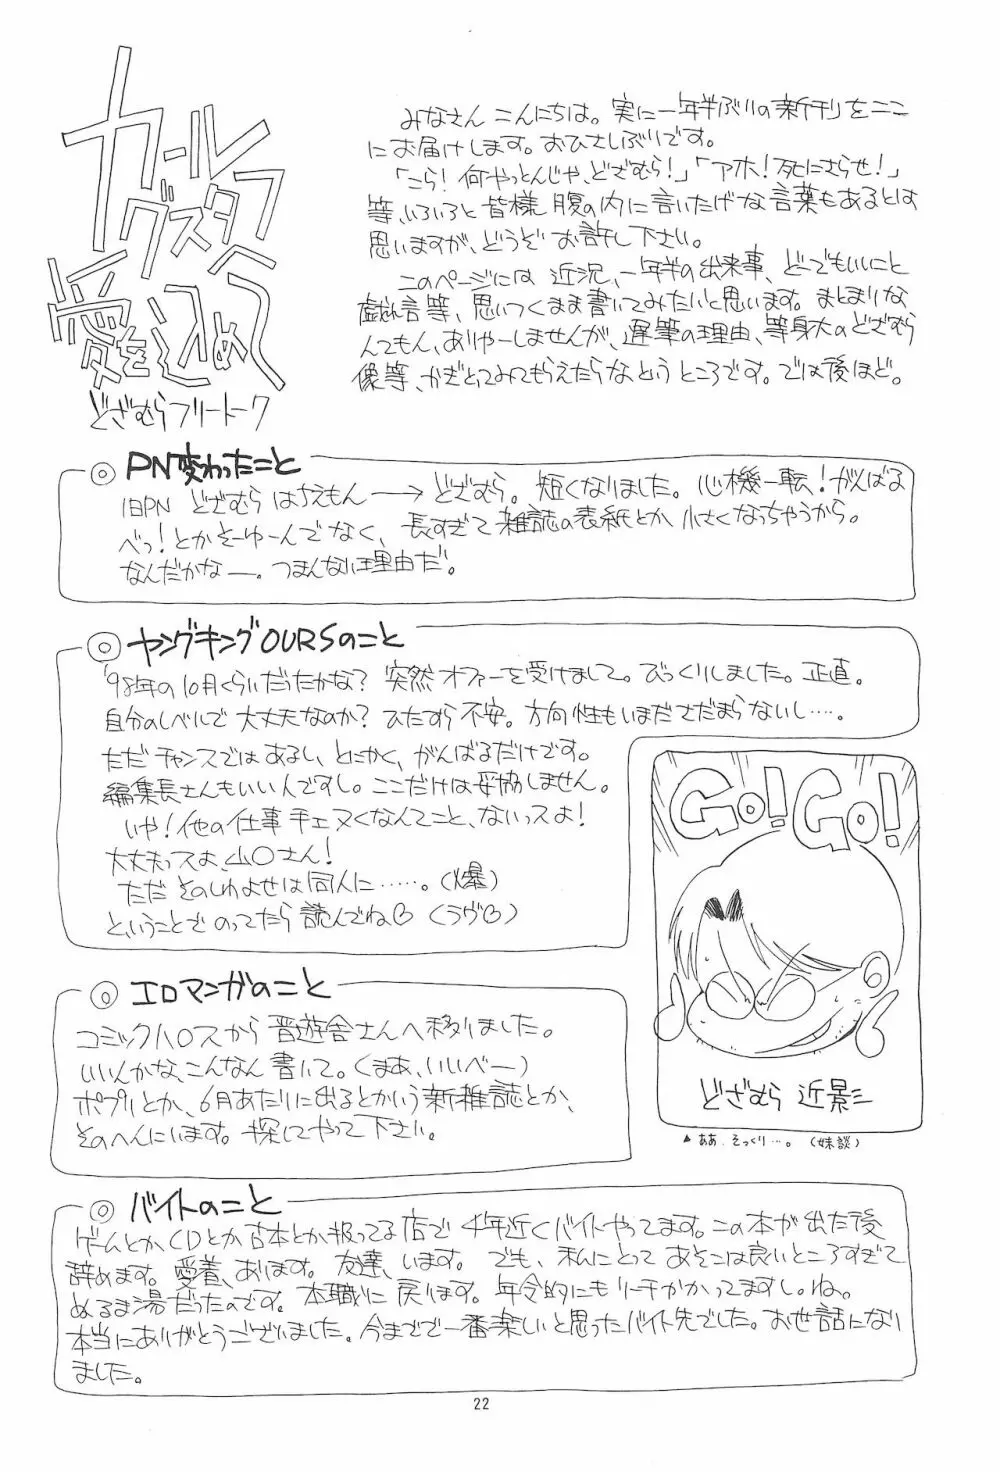 カールグスタフ
愛を込めて
どざむらフリートーク
みなさんこんにちは。実に一年半ぶりの新刊をここ
にお届けします。おひさしぶりです。
「こら!何やっとんじゃ、どざむら!」「アホ!死にさらせ!」
等、いろいろと皆様腹の内に言いたげな言葉もあるとは
思いますが、どうぞお許し下さい。
このページには近況、一年半の出来事、どーでもいいこと
戯れ言等、思いつくまま書いてみたいと思います。まとまりな
んてもん、ありゃーしませんが、遅筆の理由、等身大のどざむら
像等、かぎとってみてもらえたらなというところです。では後ほど。
◎PN変わったこと
旧PN どざむらはちえもん→どざむら。短くなりました。心機一転!がんばる
べっ!とかそーゆーんでなく、長すぎて雑誌の表紙とか小さくなっちゃうから。
なんだかなー。つまんない理由だ。
◎ヤングキングOURSのこと
'98年の10月くらいだったかな?突然オファーを受けまして。びっくりしました。正直。
自分のレベルで大丈夫なのか?ひたすら不安。方向性もいまださだまらないし…。
ただチャンスではあるし、とにかく、がんばるだけです。
編集長さんもいい人ですし。ここだけは妥協しません。
いや!他の仕事手ェヌくなんてこと、ないっスよ!
大丈夫っスよ、山○さん!
ただそのしわよせは同人に……。(爆)
ということでのってたら読んでね♡(ラヴ♡)
GO! GO!
どざむら 近影
▲ああ、そっくり…。(妹談)
◎エロマンガのこと
コミックハ○スから晋遊舎さんへ移りました。
いいんかな、こんなん書いて。(まあ、いいべー)
ポプリとか、6月あたりに出るとかいう新雑誌とか、
そのへんにいます。探してやって下さい。
◎バイトのこと
ゲームとかCDとか古本とか扱ってる店で4年近くバイトやってます。この本が出た後
辞めます。愛着、あります。友達、います。でも、私にとってあそこは良いところすぎて
ぬるま湯だったのです。本職に戻ります。年令的にもリーチかかってますし。ね。
本当にありがとうございました。今までで一番楽しいと思ったバイト先でした。お世話になり
ました。
22